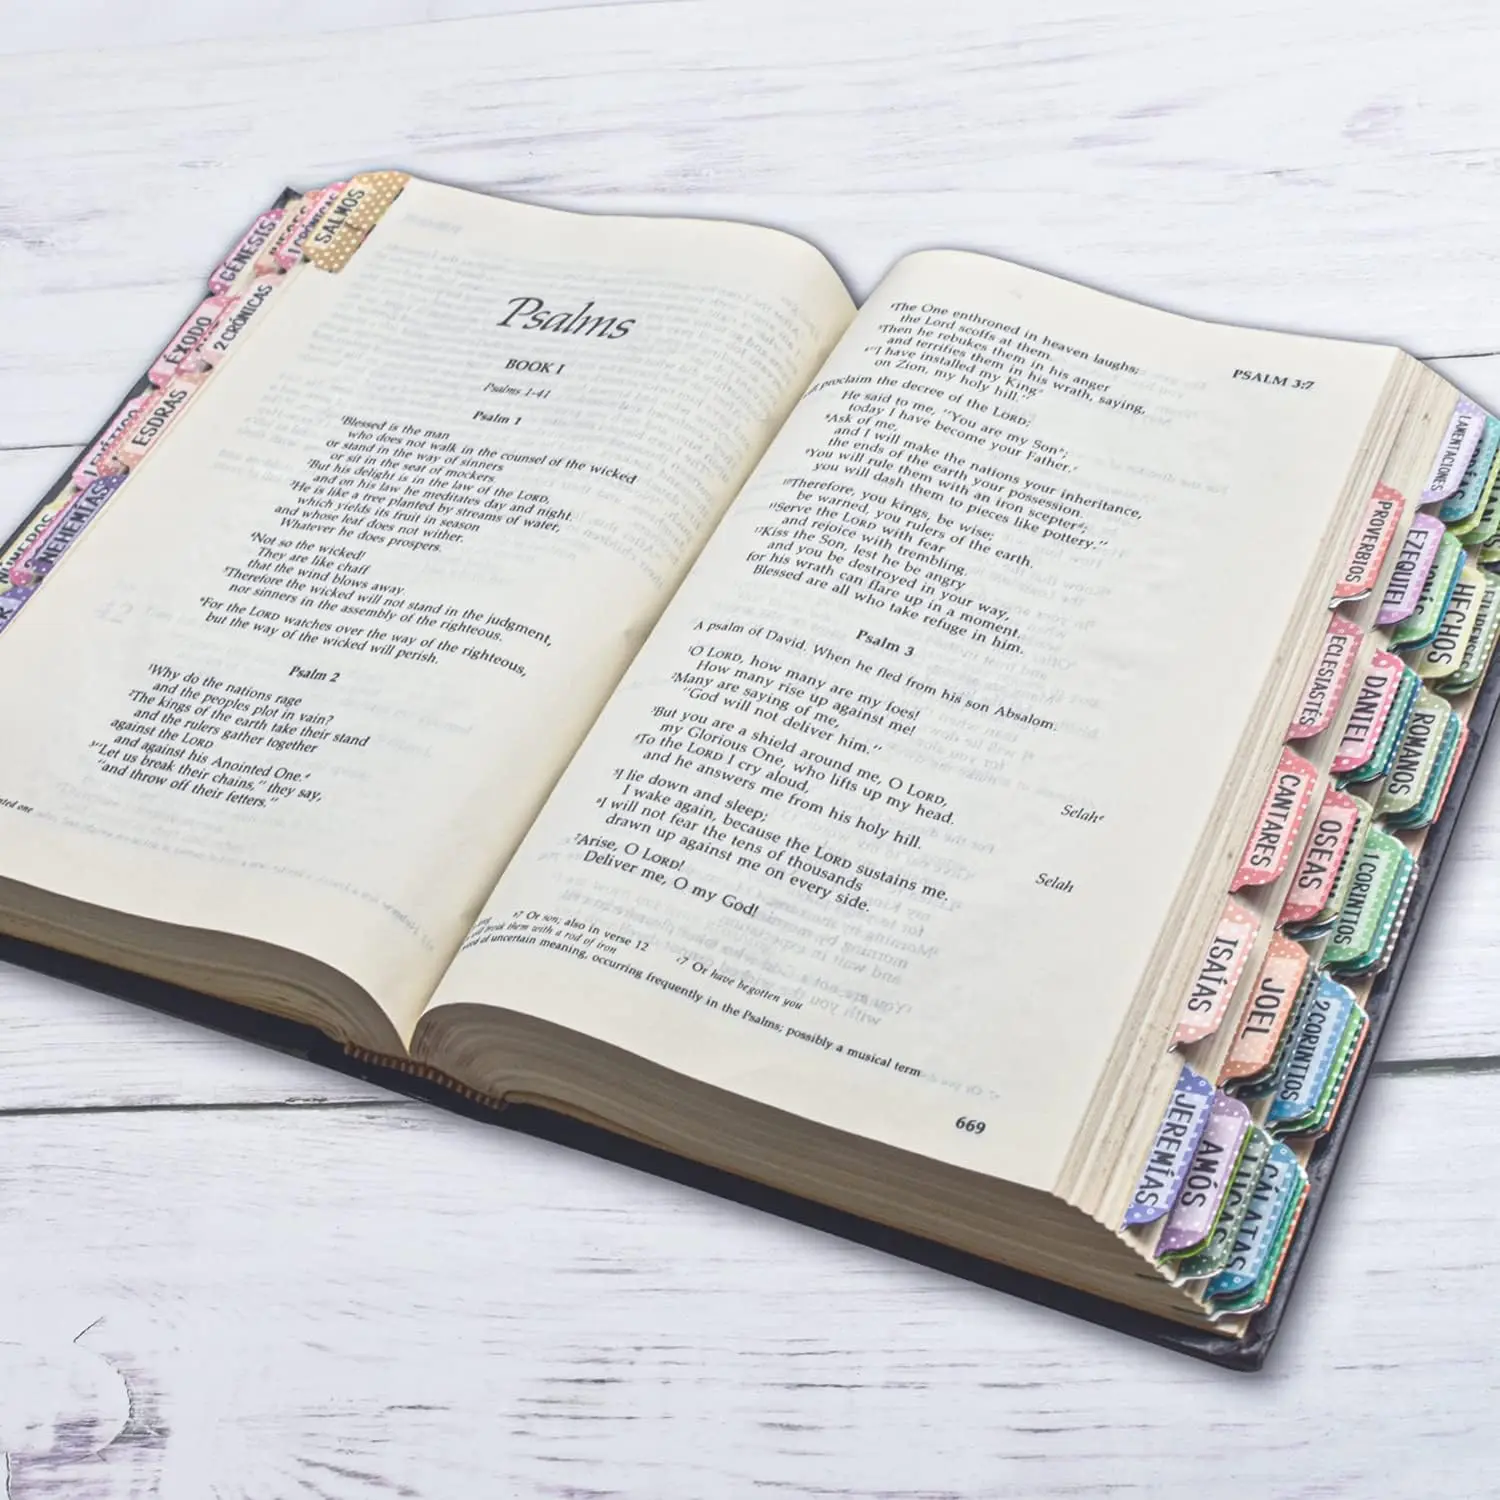 GÉNESIS
1 CRÓNICAS
SALMOS
ÉXODO
2 CRÓNICAS
ESDRAS
NEHEMÍAS
Psalms
BOOK I
Psalms 1-41
Psalm 1
¹Blessed is the man
who does not walk in the counsel of the wicked
or stand in the way of sinners
or sit in the seat of mockers.
²But his delight is in the law of the LORD,
and on his law he meditates day and night.
³He is like a tree planted by streams of water,
which yields its fruit in season
and whose leaf does not wither.
Whatever he does prospers.
⁴Not so the wicked!
They are like chaff
that the wind blows away.
⁵Therefore the wicked will not stand in the judgment,
nor sinners in the assembly of the righteous.
⁶For the LORD watches over the way of the righteous,
but the way of the wicked will perish.
Psalm 2
¹Why do the nations rage
and the peoples plot in vain?
²The kings of the earth take their stand
and the rulers gather together
against the LORD
and against his Anointed One.
³"Let us break their chains," they say,
"and throw off their fetters."
one
PSALM 3:7
⁴The One enthroned in heaven laughs;
the Lord scoffs at them.
⁵Then he rebukes them in his anger
and terrifies them in his wrath, saying,
⁶"I have installed my King
on Zion, my holy hill."
proclaim the decree of the LORD:
He said to me, "You are my Son;
today I have become your Father.
⁸Ask of me,
and I will make the nations your inheritance,
the ends of the earth your possession.
⁹You will rule them with an iron scepter;
you will dash them to pieces like pottery."
¹⁰Therefore, you kings, be wise;
be warned, you rulers of the earth.
¹¹Serve the LORD with fear
and rejoice with trembling.
¹²Kiss the Son, lest he be angry
and you be destroyed in your way,
for his wrath can flare up in a moment.
Blessed are all who take refuge in him.
Psalm 3
A psalm of David. When he fled from his son Absalom.
¹O LORD, how many are my foes!
How many rise up against me!
²Many are saying of me,
"God will not deliver him." Selah
³But you are a shield around me, O LORD,
my Glorious One, who lifts up my head.
⁴To the LORD I cry aloud,
and he answers me from his holy hill. Selah
⁵I lie down and sleep;
I wake again, because the LORD sustains me.
⁶I will not fear the tens of thousands
drawn up against me on every side.
⁷Arise, O LORD!
Deliver me, O my God!
7 Or son; also in verse 12 7 Or have begotten you
break them with a rod of iron
of uncertain meaning, occurring frequently in the Psalms; possibly a musical term
669
LAMENTACIONES
PROVERBIOS
EZEQUIEL
HECHOS
ECLESIASTÉS
DANIEL
ROMANOS
CANTARES
OSEAS
1 CORINTIOS
ISAÍAS
JOEL
2 CORINTIOS
JEREMÍAS
AMÓS
LUCAS
GÁLATAS